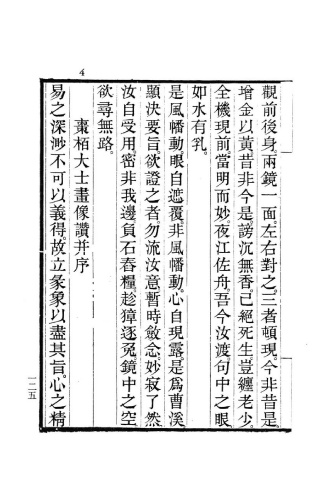 4
觀前後身。兩鏡一面。左右對之。三者頓現。今非昔是。
增金以黃。昔非今是。謗沉無香。已絕死生。豈纏老少。
全機現前。當明而妙。夜江佐舟。吾今汝渡。句中之眼。
如水有乳。
是風幡動。眼自遮覆。非風幡動。心自現露。是爲曹溪
顯決要旨。欲證之者。勿流汝意。暫時斂念。妙寂了然。
汝自受用。密非我邊。負石舂糧。趁獐逐兔。鏡中之空
欲尋無路。
棗栢大士畫像讚并序
易之深渺。不可以義得。故立彖象以盡其旨。心之精
一二五